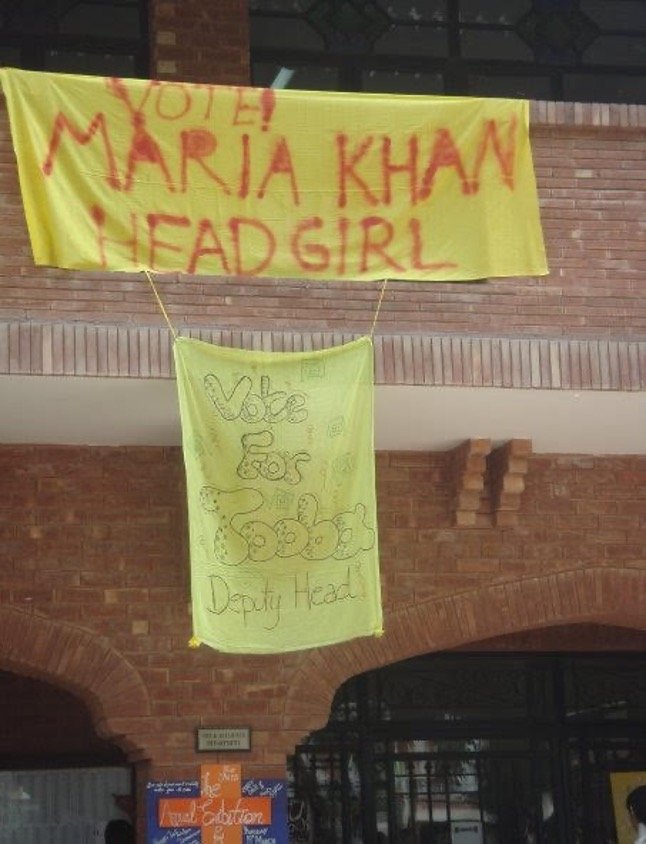 VOTE!
MARIA KHAN
HEAD GIRL
Vote
For
Tooba
Deputy Head!
DEPARTMENT
The
Annual Exibition
&